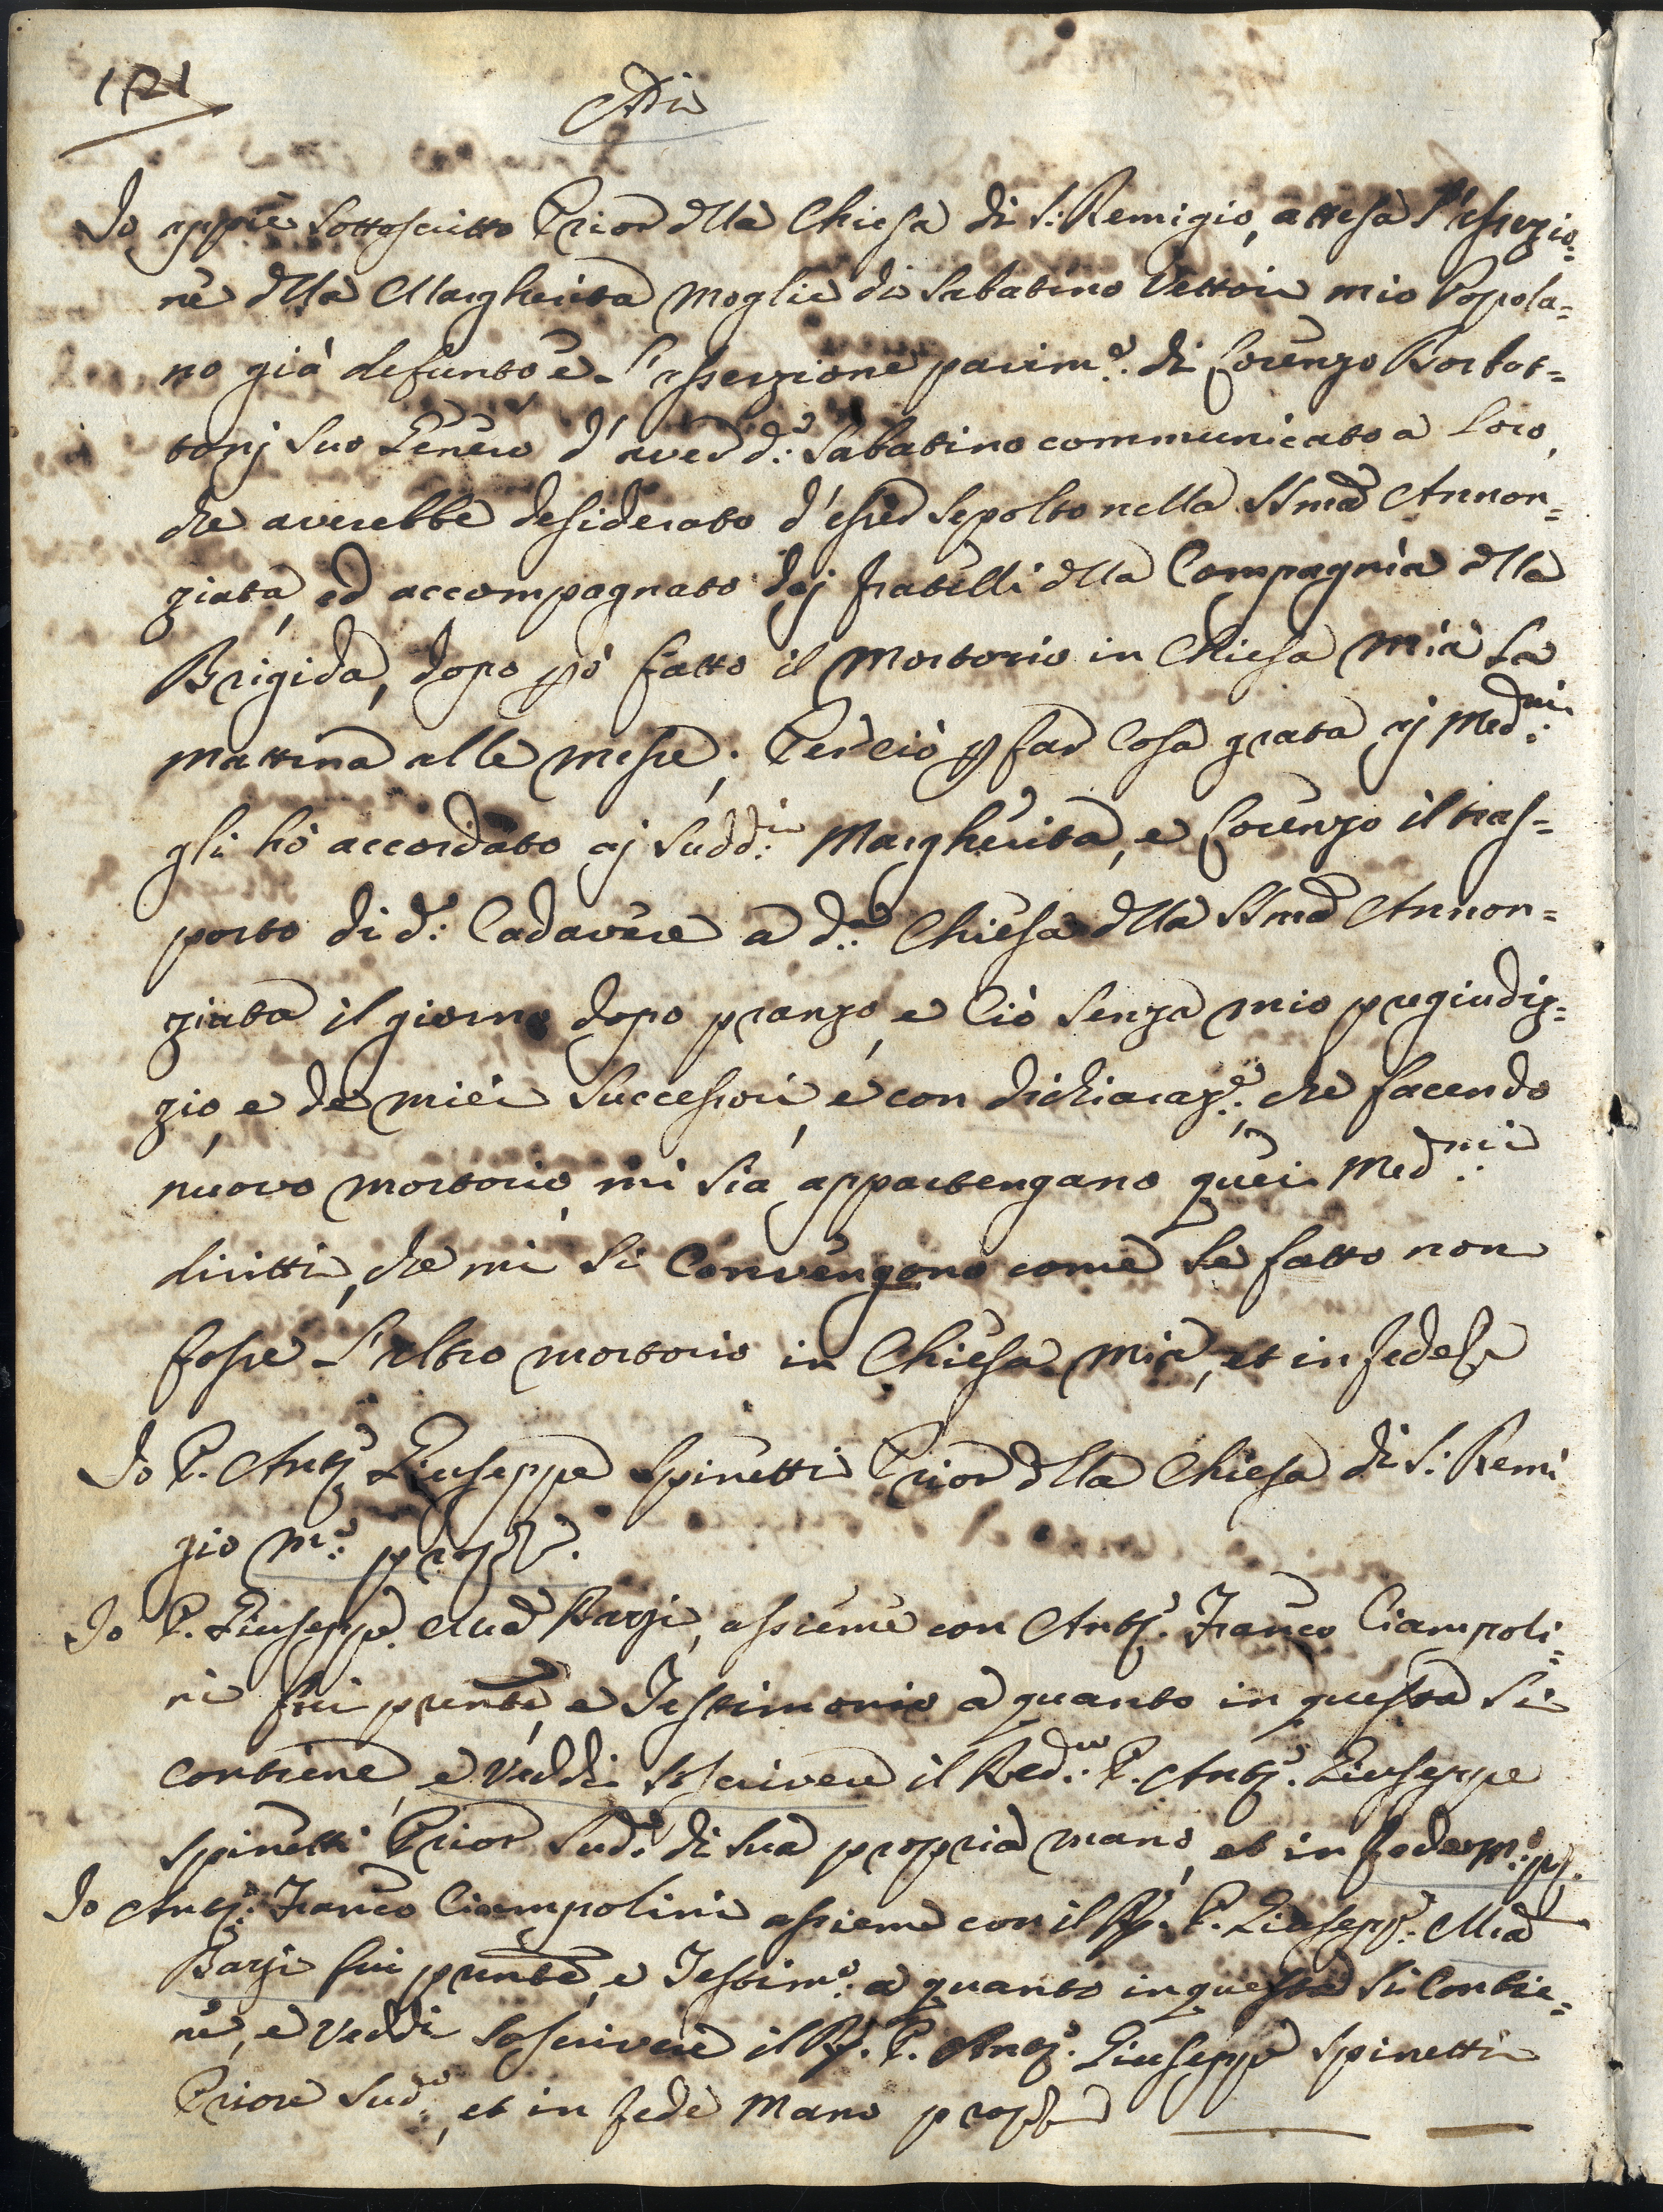 1721
Adi
Io appiè sottoscritto Prior della Chiesa di S: Remigio, attesa l'asserzio=
ne della Margherita Moglie di Sabatino Vettori mio Popola=
no già defunto e l'asserzione parim.e di Lorenzo Borbot=
tonj suo Genero d'aver d.o Sabatino communicato a loro,
che averebbe desiderato d'esser sepolto nella SSma Annon=
ziata, ed accompagnato dej fratelli della Compagnia della
Brigida, dopo però fatto il Mortorio in Chiesa mia la
mattina alle messe; Perciò p far cosa grata aj Med.mi
gli hò accordato aj Sudd.i Margherita, e Lorenzo il tras=
porto di d.o Cadavere a d.a Chiesa della SSma Annon=
ziata il giorno dopo pranzo, e ciò senza mio pregiudiz=
zio, e de miei Successori, e con dichiaraz.e che facendo
nuovo mortorio, mi sia appartengano quei Med.mi
diritti, che mi si convengono come se fatto non
fosse l'altro mortorio in Chiesa mia, et in fede
Io P. Ant.o Giuseppe Spinetti Prior della Chiesa di S: Remi
gio m.o prop.a
Io P. Giuseppe Ma Barzi, assieme con Ant.o Franco Ciampoli=
ni fui pnte, e Testimonio a quanto in questa si
contiene, e veddi soscrivere il Red.o P. Ant.o Giuseppe
Spinetti Prior Sud.o di sua propria mano, et in fede m.o pp.
Io Ant.o Franco Ciampolini assieme con il R. P. Giusepp.e Ma
Barzi fui pnte, e Testim.o a quanto in questa si contie=
ne, e veddi soscrivere il R. P. Ant.o Giuseppe Spinetti
Priore Sud.o, et in fede Mano prop.a